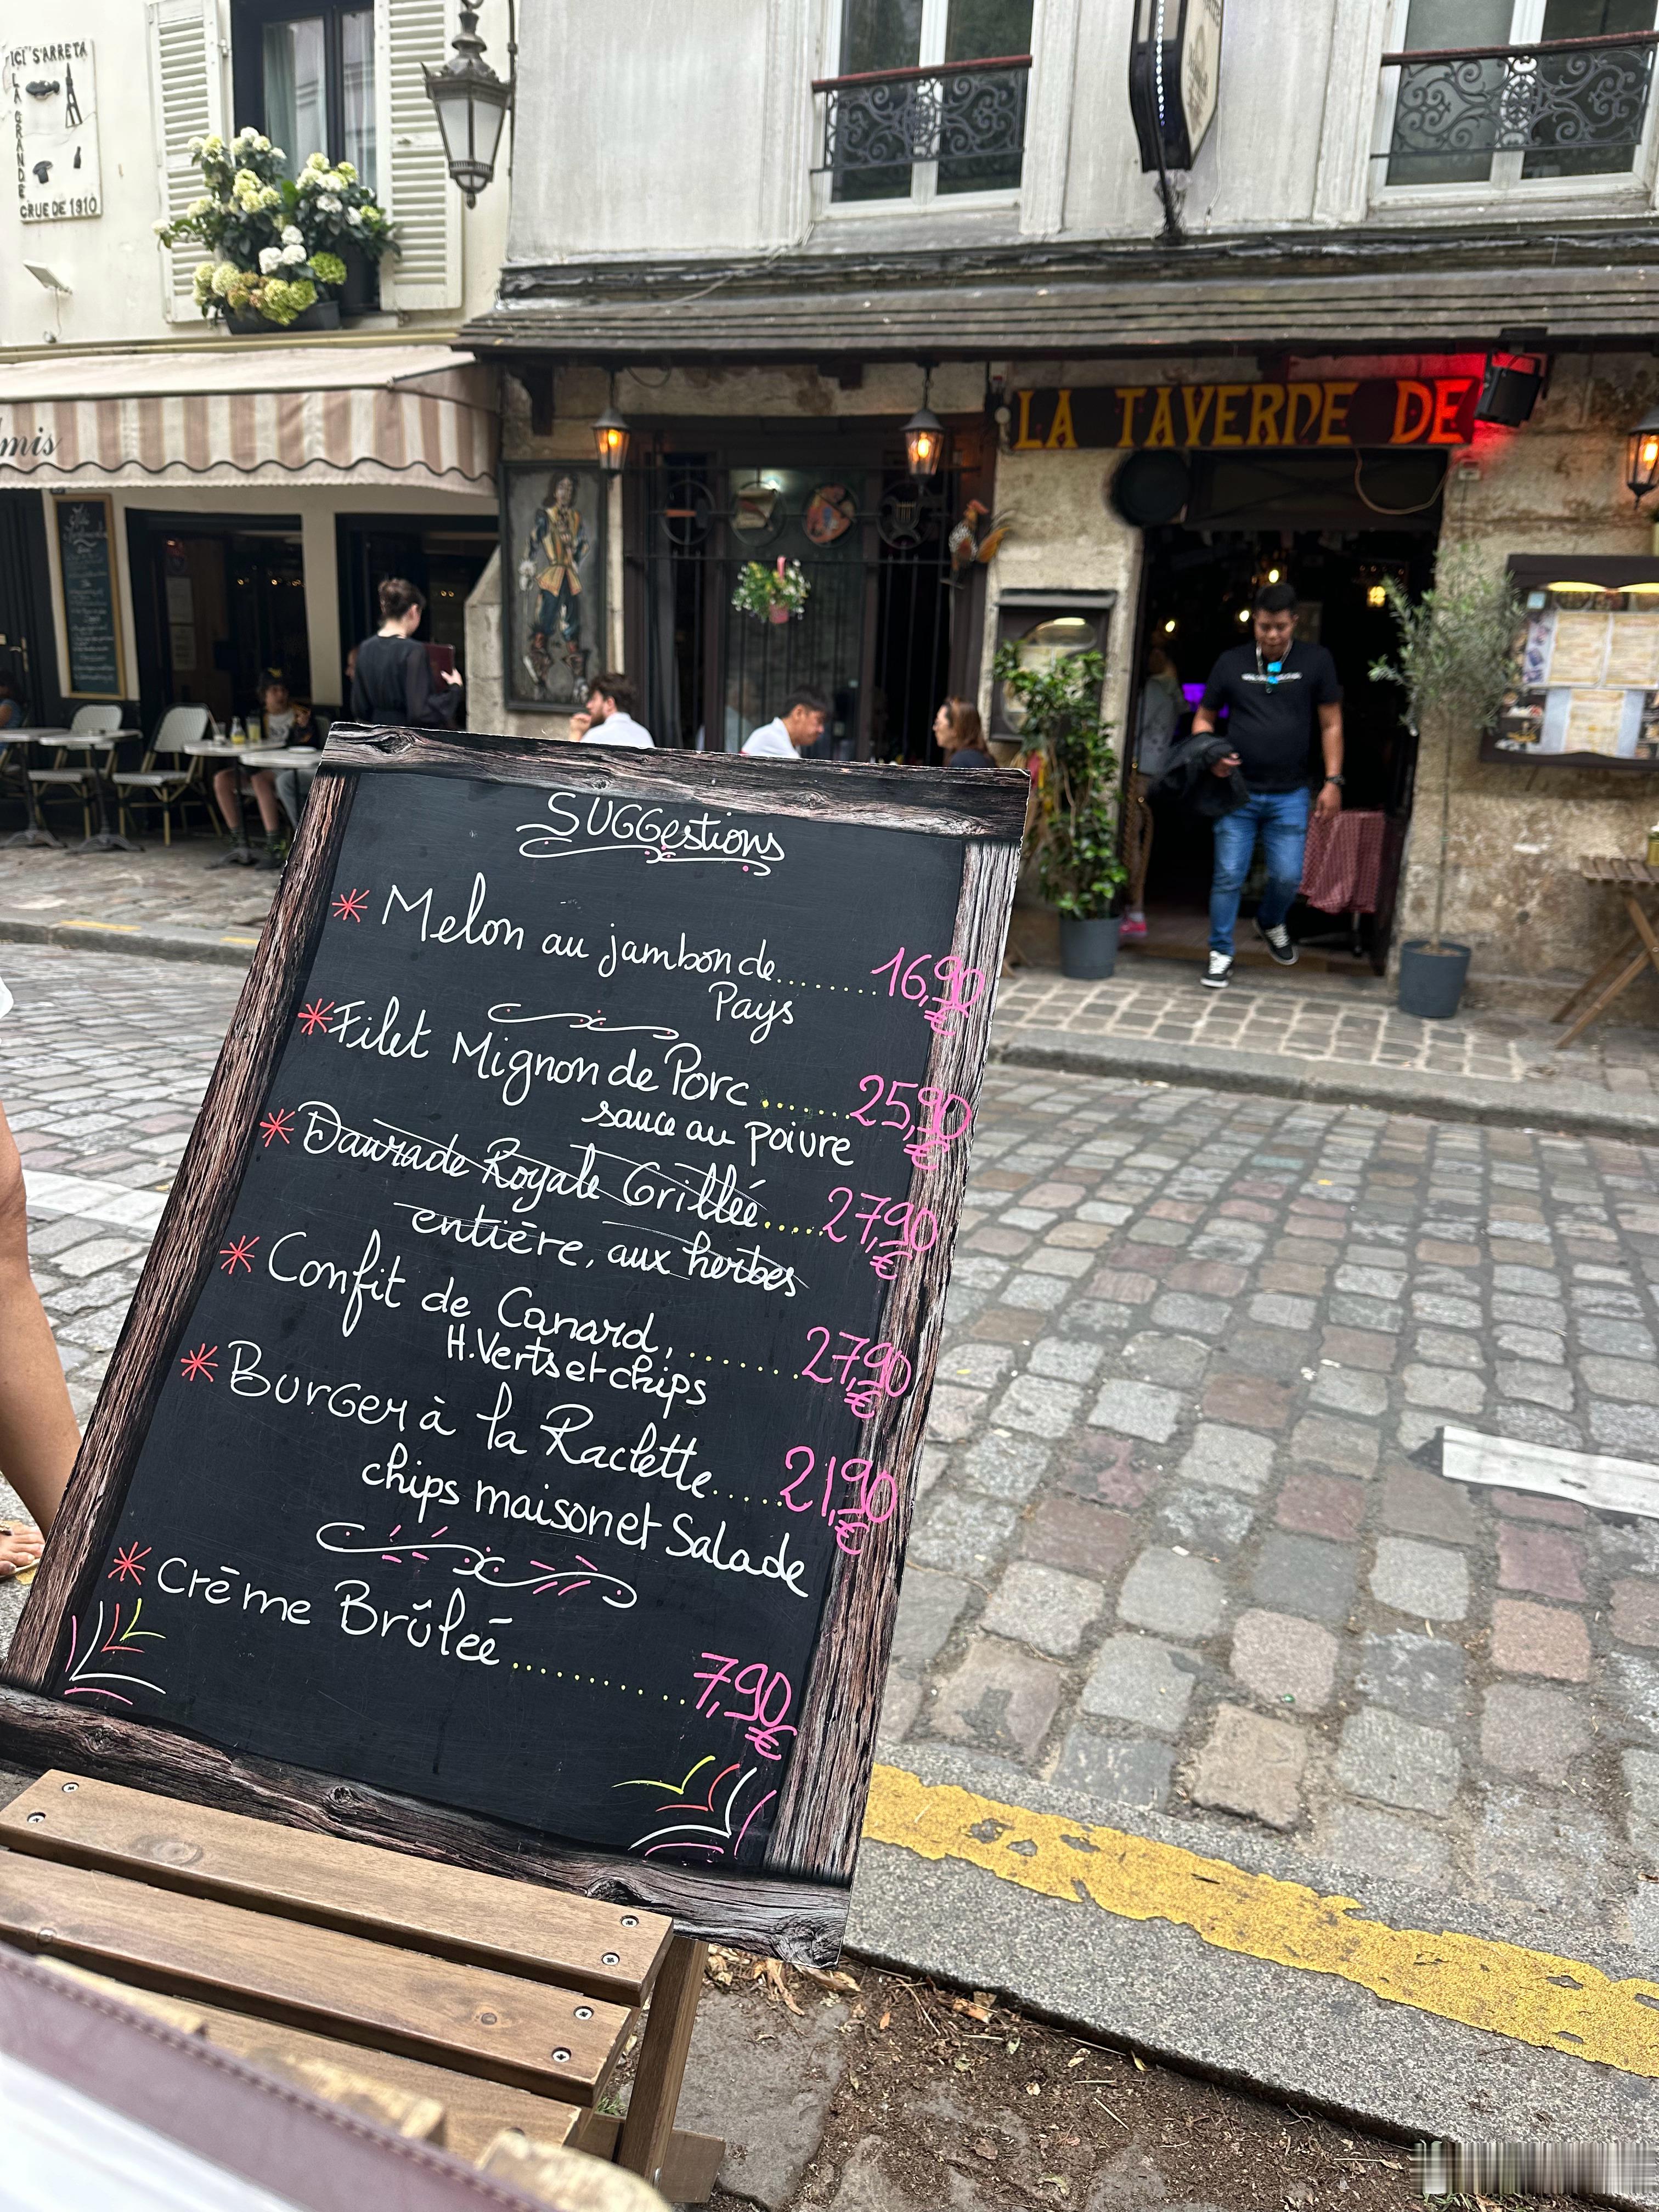 ICI S'ARRETA
LA GRANDE
CRUE DE 1910
mis
LA TAVERNE DE
SUGGestions
* Melon au jambon de........16,90€
Pays
* Filet Mignon de Porc.......25,90€
sauce au poivre
* Daurade Royale Grillée....27,90€
entière, aux herbes
* Confit de Canard,.......27,90€
H. Verts et chips
* Burger à la Raclette.....21,90€
chips maison et Salade
* Crème Brûlée............7,90€